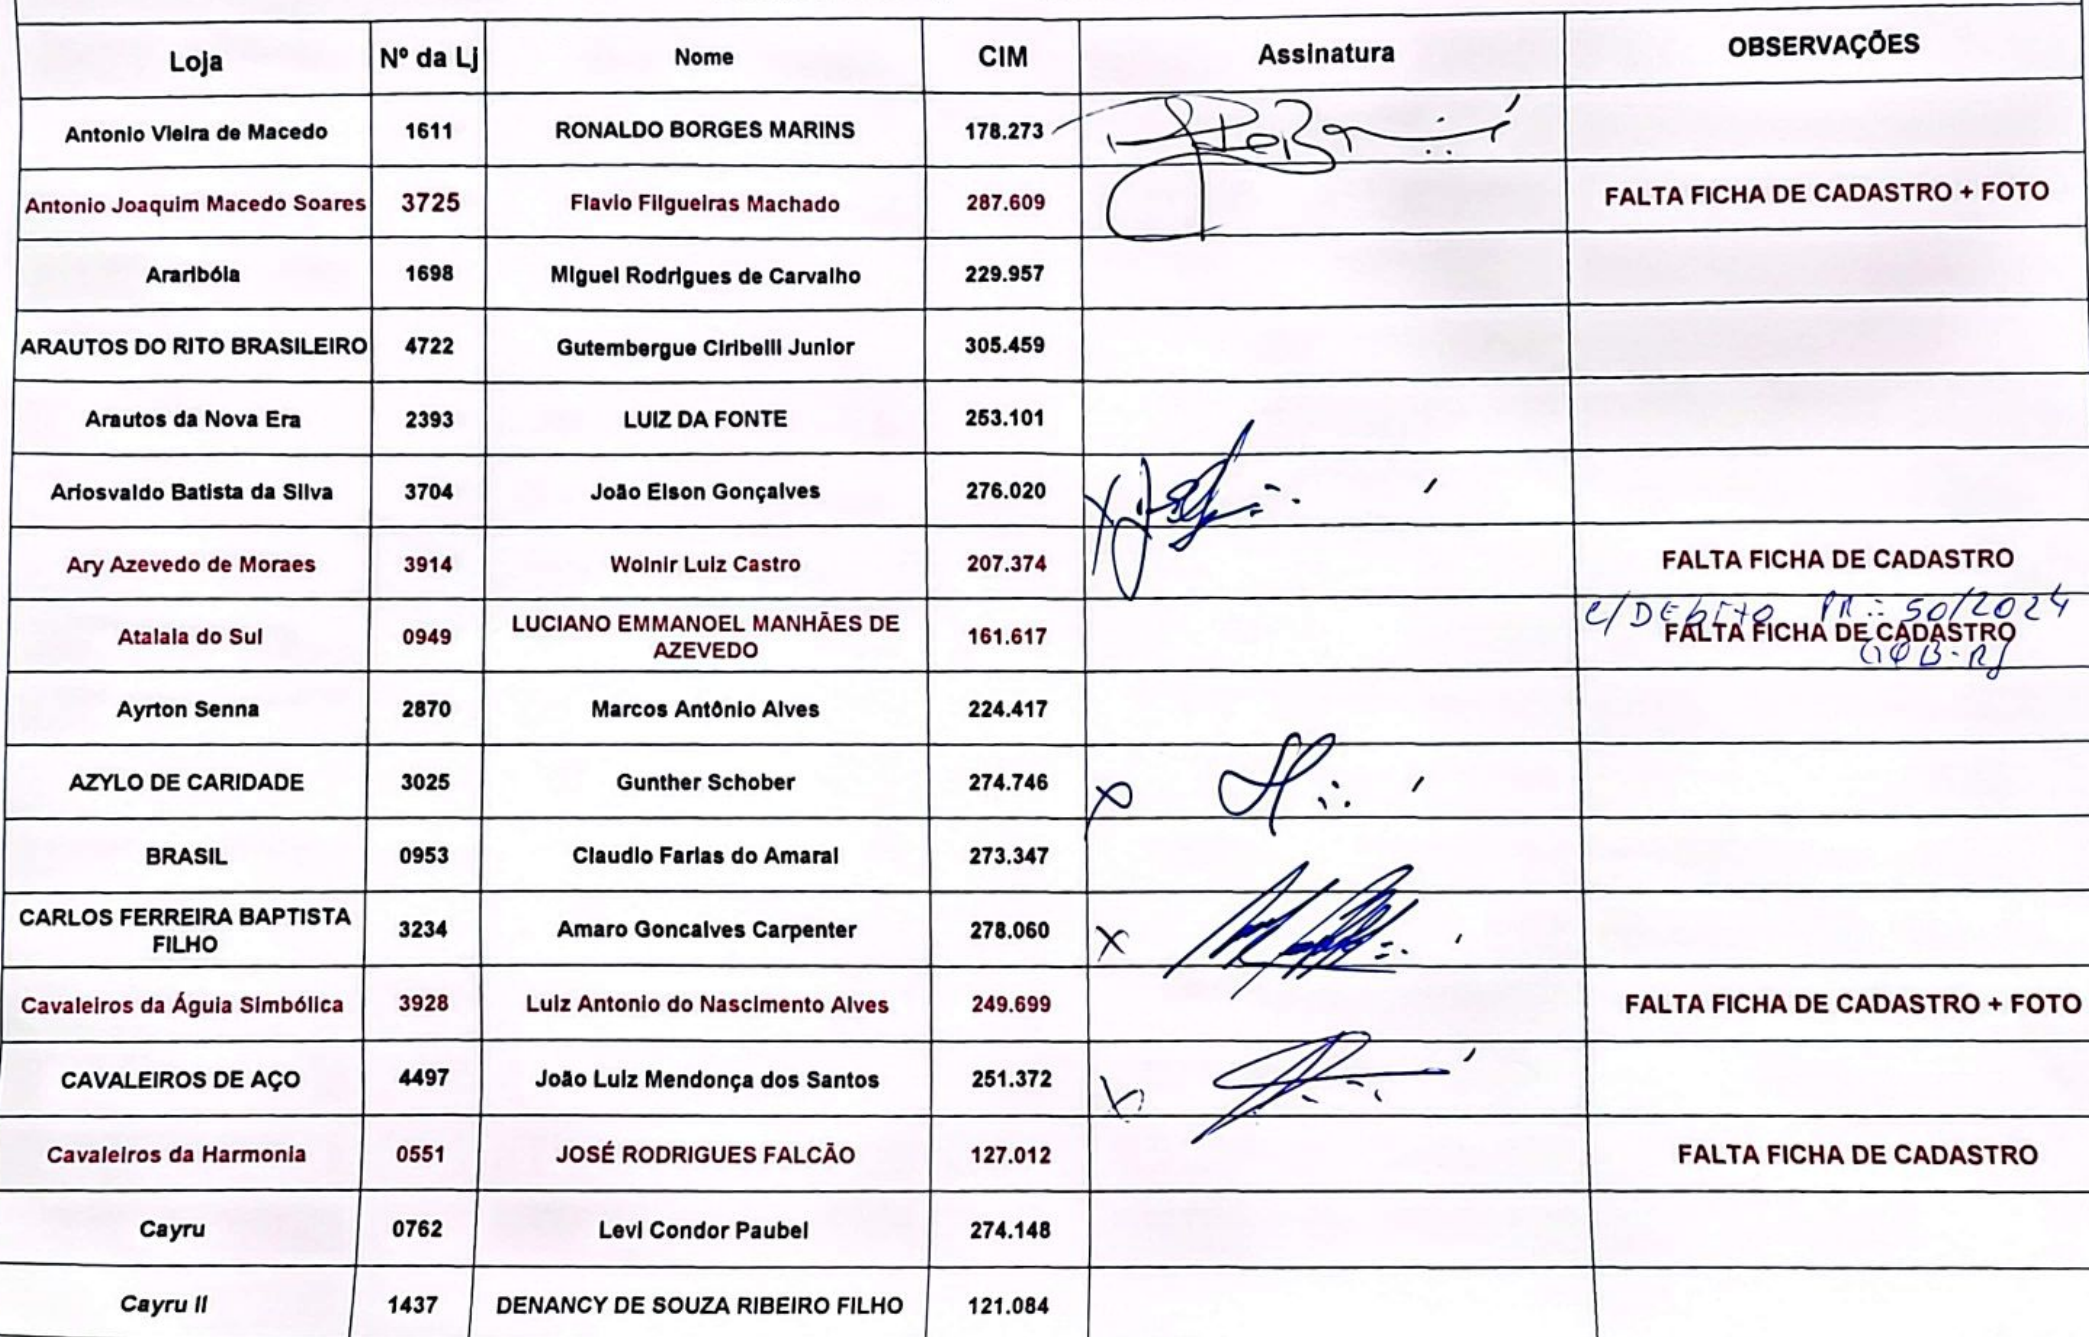 Loja Nº da Lj Nome CIM Assinatura OBSERVAÇÕES
Antonio Vieira de Macedo 1611 RONALDO BORGES MARINS 178.273
Antonio Joaquim Macedo Soares 3725 Flavio Filgueiras Machado 287.609 FALTA FICHA DE CADASTRO + FOTO
Arariboia 1698 Miguel Rodrigues de Carvalho 229.957
ARAUTOS DO RITO BRASILEIRO 4722 Gutembergue Ciribelli Junior 305.459
Arautos da Nova Era 2393 LUIZ DA FONTE 253.101
Ariosvaldo Batista da Silva 3704 João Elson Gonçalves 276.020 X
Ary Azevedo de Moraes 3914 Wolnir Luiz Castro 207.374 FALTA FICHA DE CADASTRO
C/DEBITO PR∴ 50/2024
Atalaia do Sul 0949 LUCIANO EMMANOEL MANHÃES DE AZEVEDO 161.617 FALTA FICHA DE CADASTRO
GOB-RJ
Ayrton Senna 2870 Marcos Antônio Alves 224.417
AZYLO DE CARIDADE 3025 Gunther Schober 274.746 X
BRASIL 0953 Claudio Farias do Amaral 273.347
CARLOS FERREIRA BAPTISTA FILHO 3234 Amaro Goncalves Carpenter 278.060 X
Cavaleiros da Águia Simbólica 3928 Luiz Antonio do Nascimento Alves 249.699 FALTA FICHA DE CADASTRO + FOTO
CAVALEIROS DE AÇO 4497 João Luiz Mendonça dos Santos 251.372 X
Cavaleiros da Harmonia 0551 JOSÉ RODRIGUES FALCÃO 127.012 FALTA FICHA DE CADASTRO
Cayru 0762 Levi Condor Paubel 274.148
Cayru II 1437 DENANCY DE SOUZA RIBEIRO FILHO 121.084